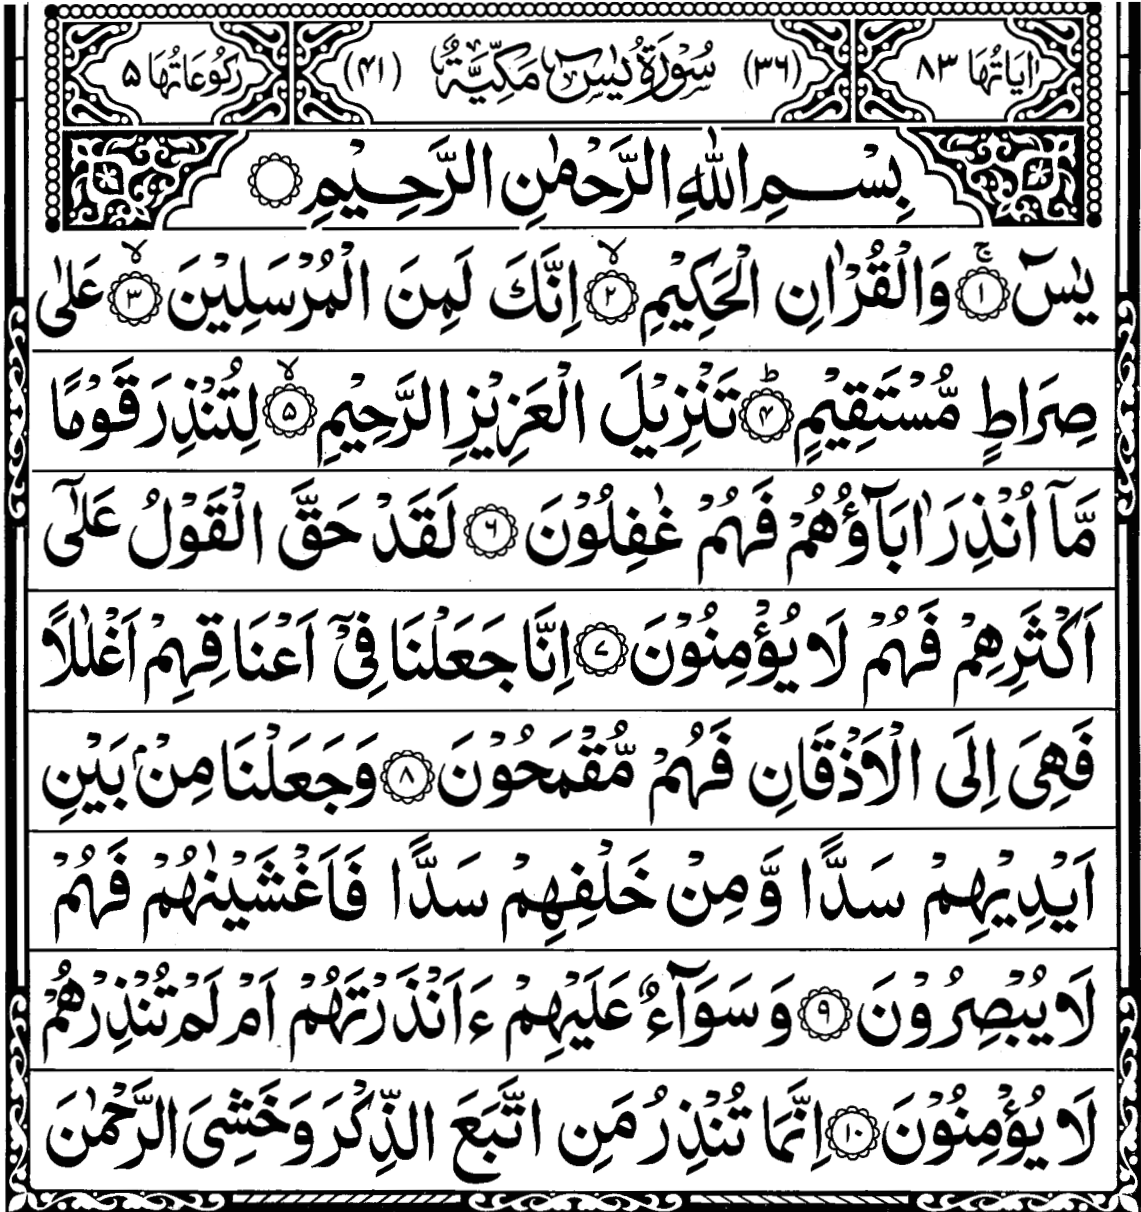 اٰيَاتُهَا ٨٣ (٣٦) سُوْرَةُ يٰسٓ مَكِّيَّةٌ (٤١) رُكُوْعَاتُهَا ٥
بِسْمِ اللّٰهِ الرَّحْمٰنِ الرَّحِيْمِ
يٰسٓ ۚ﴿١﴾ وَالْقُرْاٰنِ الْحَكِيْمِ ۙ﴿٢﴾ اِنَّكَ لَمِنَ الْمُرْسَلِيْنَ ۙ﴿٣﴾ عَلٰى
صِرَاطٍ مُّسْتَقِيْمٍ ؕ﴿٤﴾ تَنْزِيْلَ الْعَزِيْزِ الرَّحِيْمِ ۙ﴿٥﴾ لِتُنْذِرَ قَوْمًا
مَّاۤ اُنْذِرَ اٰبَآؤُهُمْ فَهُمْ غٰفِلُوْنَ ﴿٦﴾ لَقَدْ حَقَّ الْقَوْلُ عَلٰٓى
اَكْثَرِهِمْ فَهُمْ لَا يُؤْمِنُوْنَ ﴿٧﴾ اِنَّا جَعَلْنَا فِيْۤ اَعْنَاقِهِمْ اَغْلٰلًا
فَهِىَ اِلَى الْاَذْقَانِ فَهُمْ مُّقْمَحُوْنَ ﴿٨﴾ وَجَعَلْنَا مِنْۢ بَيْنِ
اَيْدِيْهِمْ سَدًّا وَّمِنْ خَلْفِهِمْ سَدًّا فَاَغْشَيْنٰهُمْ فَهُمْ
لَا يُبْصِرُوْنَ ﴿٩﴾ وَسَوَآءٌ عَلَيْهِمْ ءَاَنْذَرْتَهُمْ اَمْ لَمْ تُنْذِرْهُمْ
لَا يُؤْمِنُوْنَ ﴿١٠﴾ اِنَّمَا تُنْذِرُ مَنِ اتَّبَعَ الذِّكْرَ وَخَشِىَ الرَّحْمٰنَ